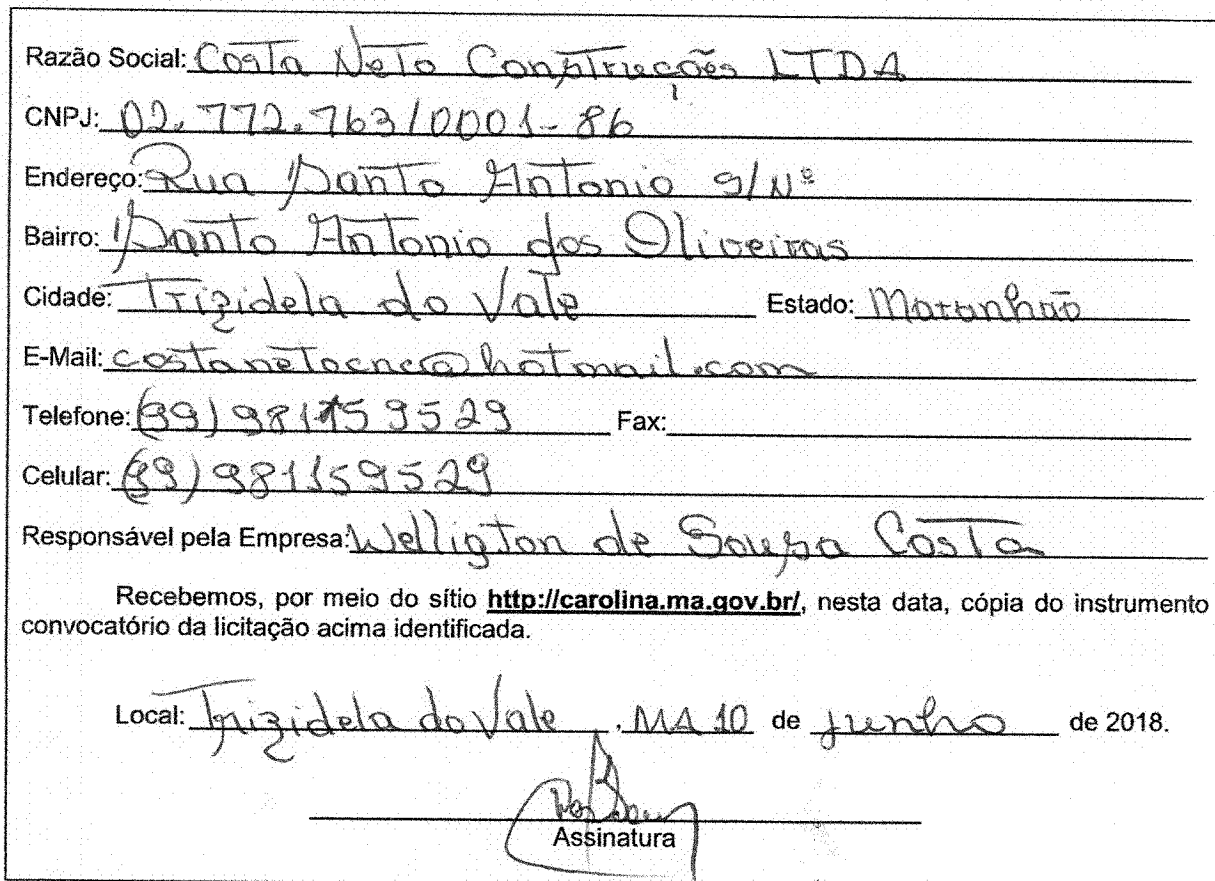 Razão Social: Costa Neto Construções LTDA
CNPJ: 02.772.763/0001-86
Endereço: Rua Santo Antonio S/Nº
Bairro: Santo Antonio dos Oliveiras
Cidade: Trizidela do Vale Estado: Maranhão
E-Mail: costanetocnc@hotmail.com
Telefone: (99) 981159529 Fax:
Celular: (99) 981159529
Responsável pela Empresa: Welligton de Sousa Costa
Recebemos, por meio do sítio http://carolina.ma.gov.br/, nesta data, cópia do instrumento
convocatório da licitação acima identificada.
Local: Trizidela do Vale, MA 10 de junho de 2018.
Assinatura